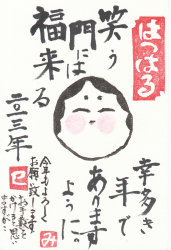 はつはる
笑う
門には
福来る
二〇一三年
幸多き
年で
あります
ように。
今年もよろしく
お願い致します
巳
み